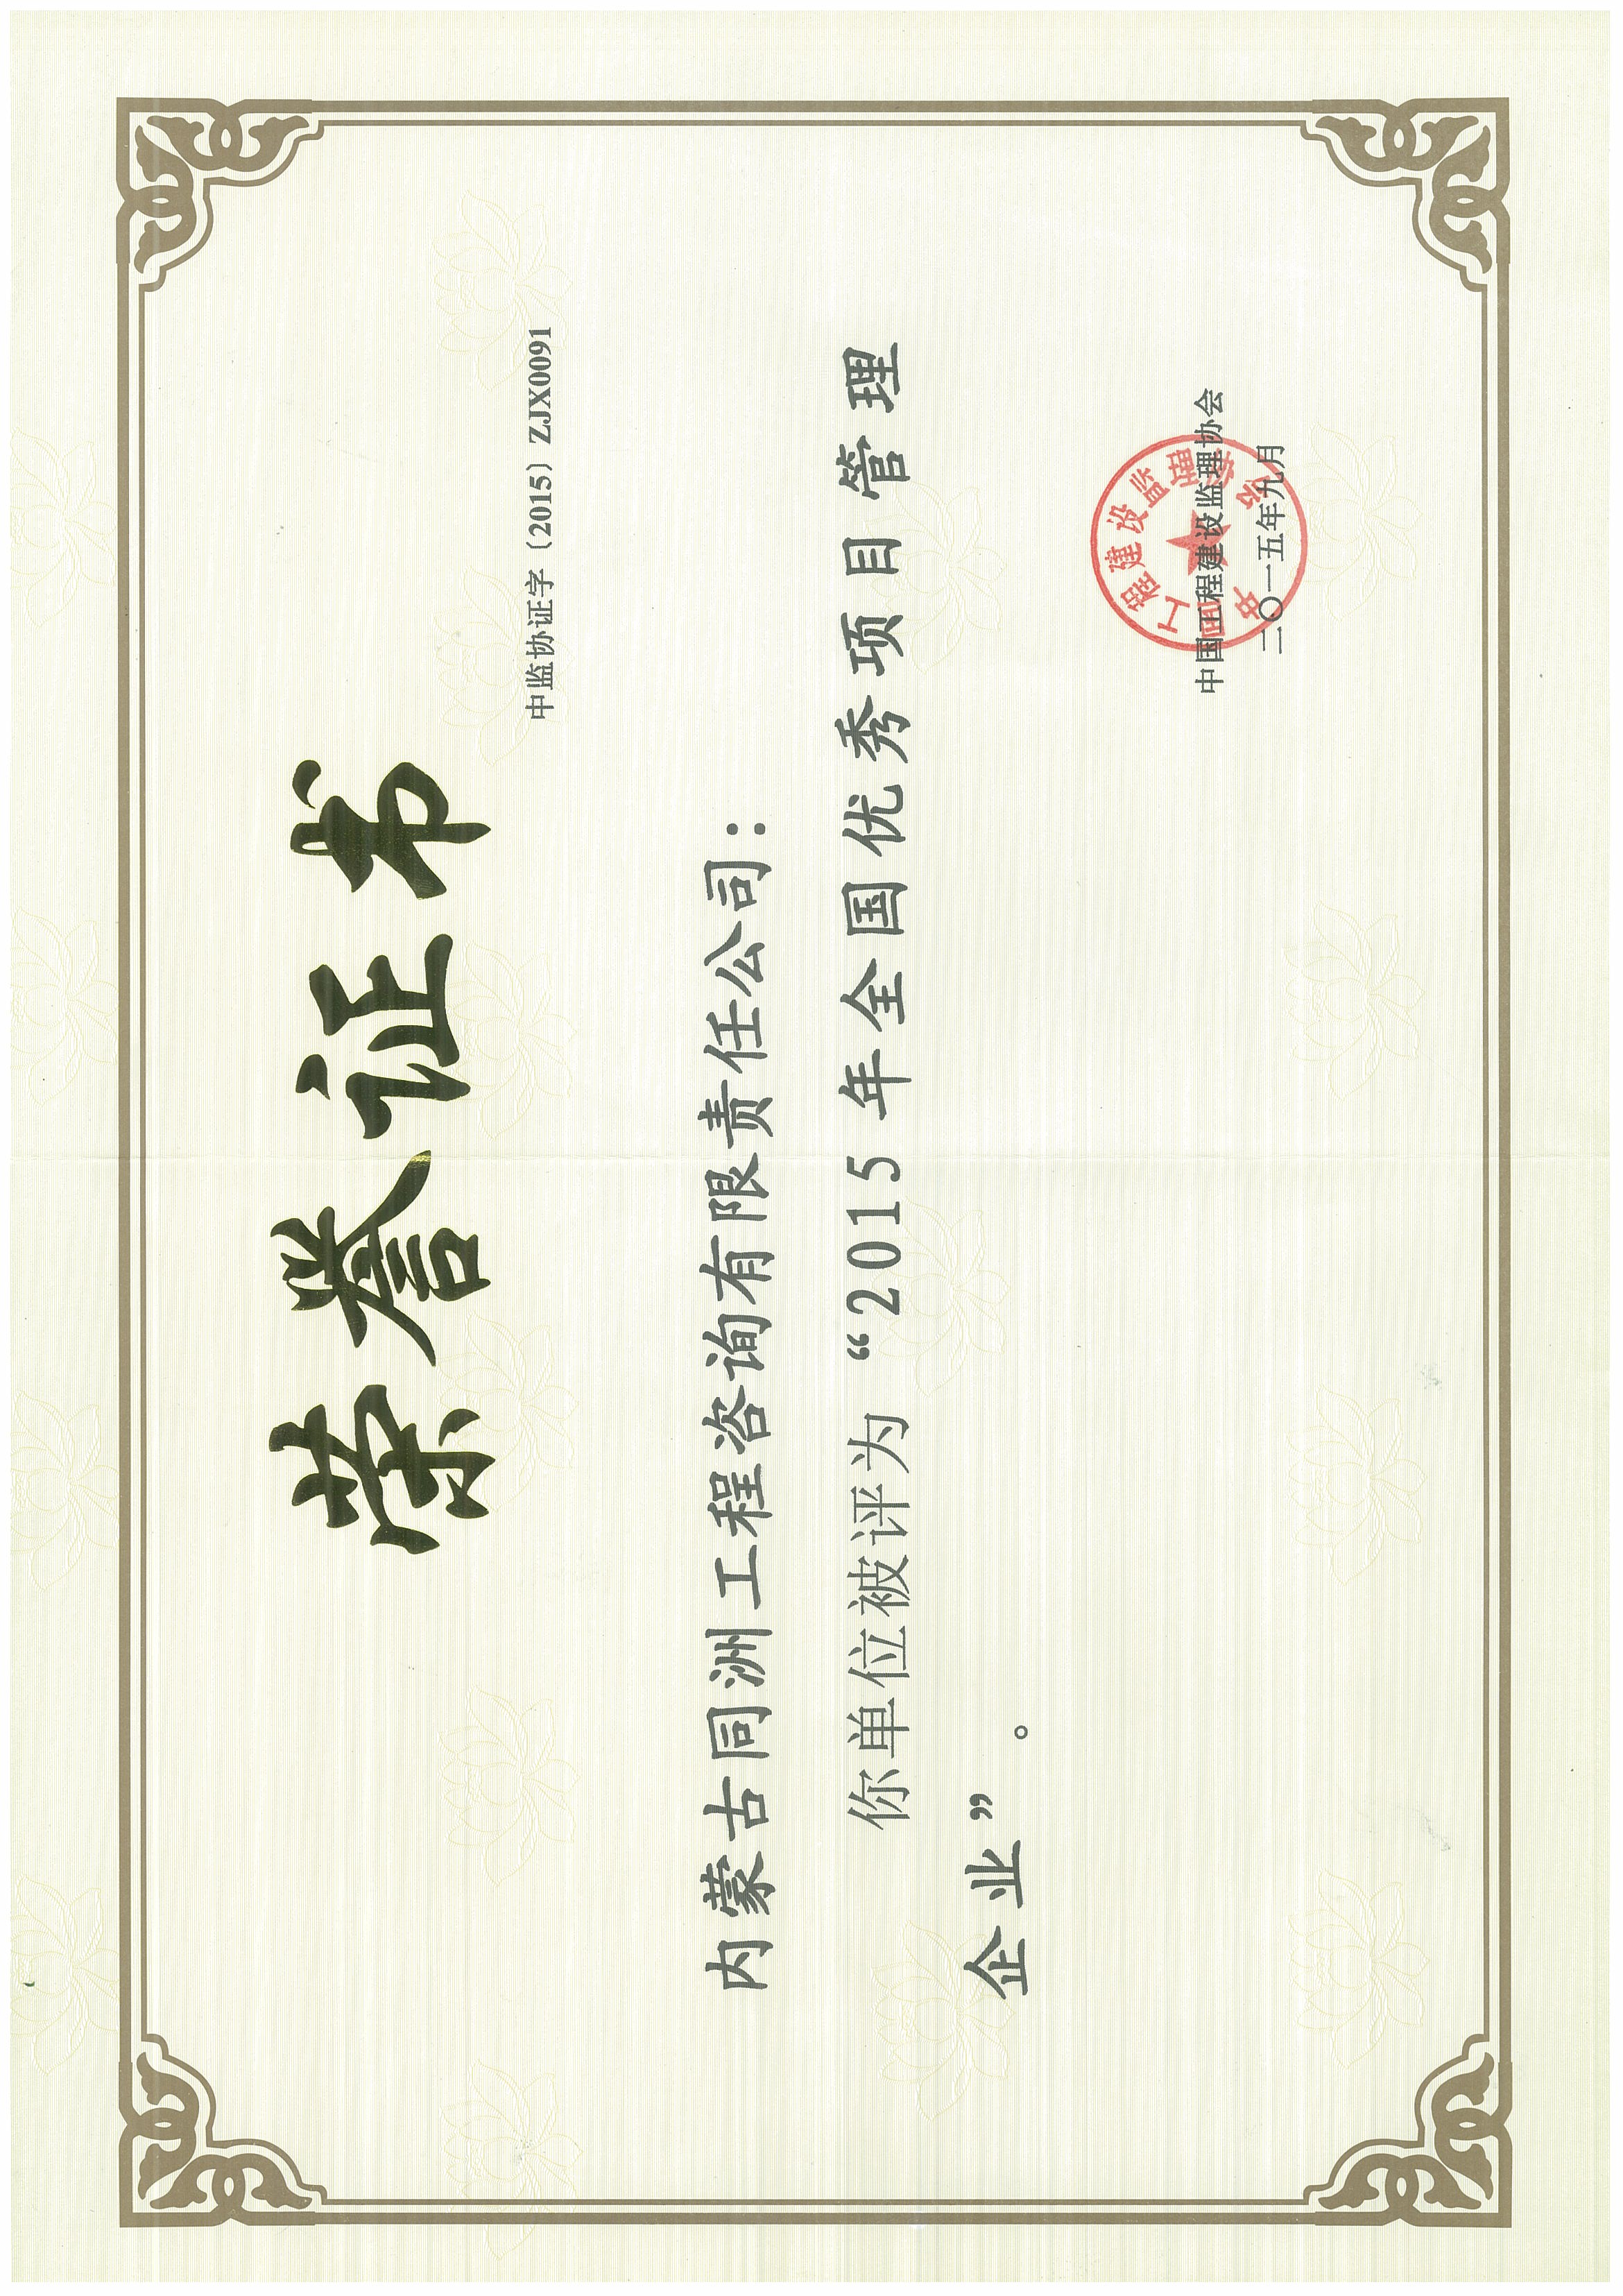 荣誉证书
中监协证字〔2015〕ZJX0091
内蒙古同洲工程咨询有限责任公司：
你单位被评为“2015年全国优秀项目管理
企业”。
中国工程建设监理协会
二〇一五年九月
中国工程建设监理协会